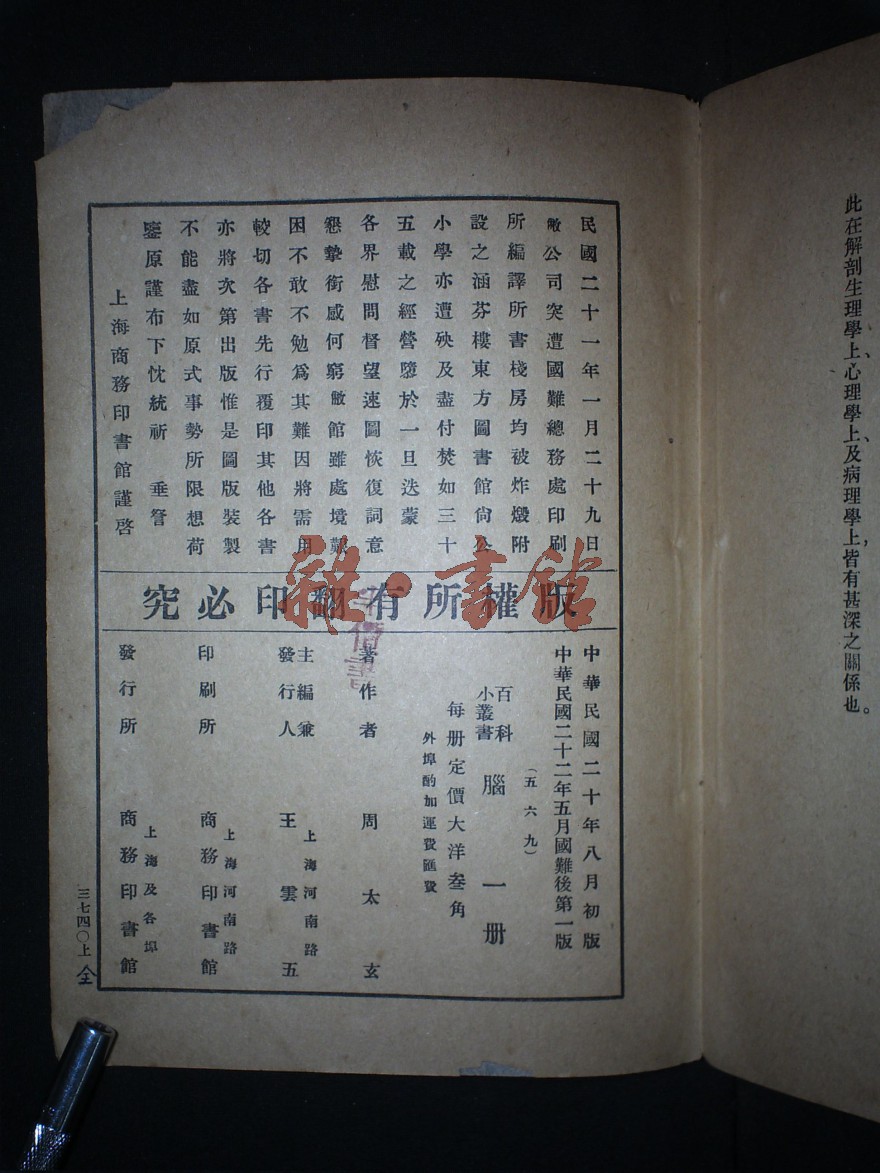 此在解剖生理學上、心理學上、及病理學上，皆有甚深之關係也。
民國二十一年一月二十九日
敝公司突遭國難總務處印刷
所編譯所書棧房均被炸燬附
設之涵芬樓東方圖書館尙公
小學亦遭殃及盡付焚如三十
五載之經營隳於一旦迭蒙
各界慰問督望速圖恢復詞意
懇摯銜感何窮敝館雖處境艱
困不敢不勉爲其難因將需用
較切各書先行覆印其他各書
亦將次第出版惟是圖版裝製
不能盡如原式事勢所限想荷
鑒原謹布下忱統祈 垂詧
上海商務印書館謹啓
版權所有翻印必究
中華民國二十年八月初版
中華民國二十二年五月國難後第一版
（五六九）
百科小叢書 腦 一册
每册定價大洋叁角
外埠酌加運費匯費
著作者 周太玄
主編兼發行人 上海河南路 王雲五
印刷所 上海河南路 商務印書館
發行所 上海及各埠 商務印書館
三七四〇上 全
雜·書館